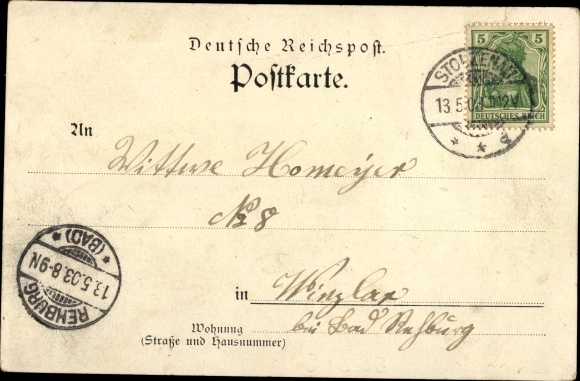 Deutsche Reichspost.
Postkarte.
5 5
DEUTSCHES REICH
13.5.03
An
Wittwe Homeyer
No 8
in Winzlar
bei Bad Rehburg
Wohnung
(Straße und Hausnummer)
REHBURG
13.5.03.8-9N
* (BAD) *